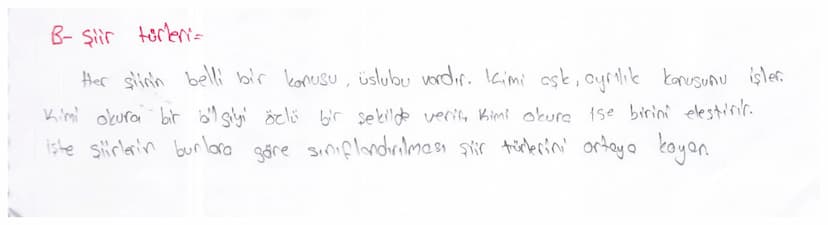 B- Şiir türleri=
Her şiirin belli bir konusu, üslubu vardır. Kimi aşk, ayrılık konusunu işler.
Kimi okura bir bilgiyi özlü bir şekilde verir, kimi okura ise birini eleştirir.
İşte şiirlerin bunlara göre sınıflandırılması şiir türlerini ortaya koyar.